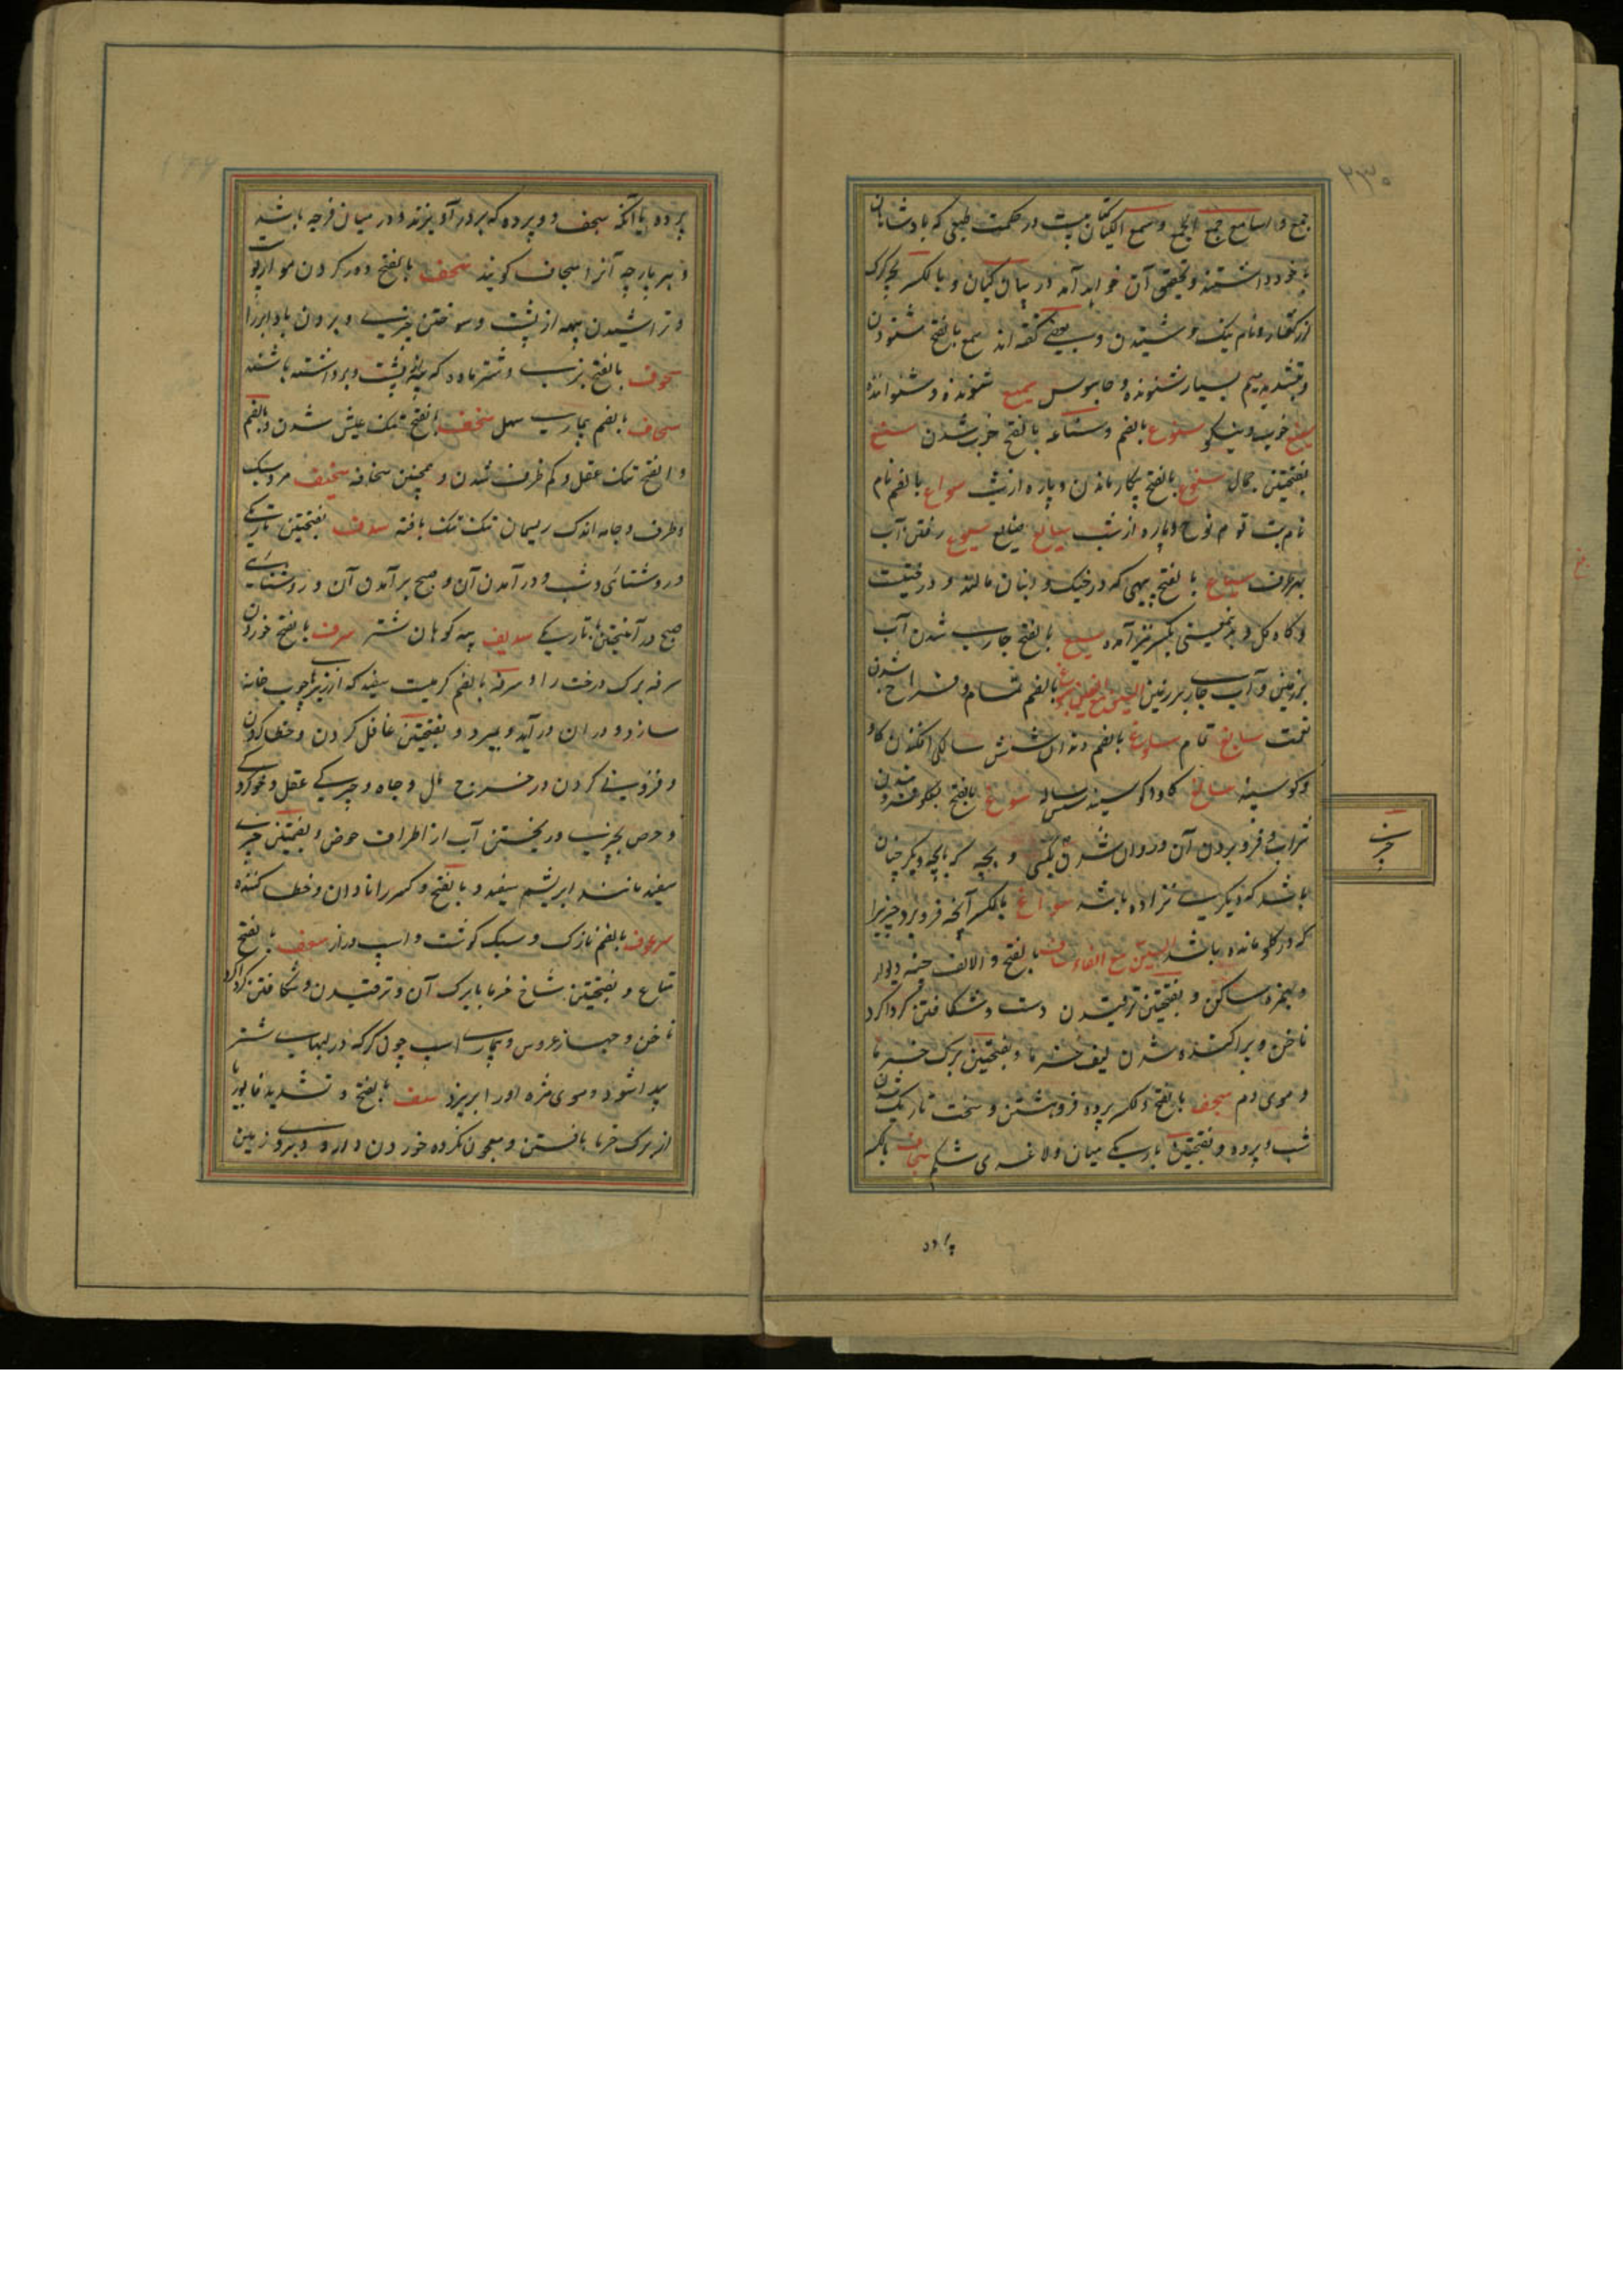 جمع و اسامع جمع الجمع و سمع الکیان کتابیست در حکمت طبیعی که پادشاهان
با خود داشتند و تحقیق آن خواهد آمد در بیان کیان و بالکسر بچه گرگ
از کفتار و نام نیک و شنیدن و بعضی گفته اند سمع بالفتح شنودن
و بتشدید میم بسیار شنونده و جاسوس سمیع شنونده و شنواننده
سنیع خوب و نیکو سنوع بالضم و سناعه بالفتح خوب شدن سنع
بفتحتین جمال سوع بالفتح بیکار ماندن و پاره از شب سواع بالضم نام
نام بت قوم نوح و پاره از شب سایع ضایع سیوع رفتن آب
بهر طرف سیاع بالفتح پیهی که در خیک و انبان مالند و درختیست
و کاه گل و بدینمعنی بکسر نیز آمده سیع بالفتح جاری شدن آب
بر زمین و آب جاری بر زمین السین مع الغین سبوغ بالضم تمام و فراخ شدن
نعمت سابغ تمام سلوغ بالضم دندان شش سالگی افکندن گاو
و گوسپند سالغ گاو و گوسپند شش ساله سوغ بالفتح بگلو فرو شدن
شراب و فرو بردن آن و روان شدن و بچه که با بچه دیگر چنان
باشد که دیگری نزاده باشد سواغ بالکسر آنچه فرو برد چیزیرا
که در گلو مانده باشد السین مع الفاء ساف بالفتح و الالف چینه دیوار
و بهمزه ساکن و بفتحتین ترقیدن دست و شکافتن گرداگرد
ناخن و پراکنده شدن لیف خرما و بفتحتین برگ خرما
و موی دم سجف بالفتح و الکسر پرده فروهشتن و سخت تاریک شدن
شب و پرده و بفتحتین باریکی میان و لاغری شکم سجاف بالکسر
پرده
پرده یا آنکه سجف دو پرده که بر در آویزند و در میان فرجه باشد
و هر پارچه آنرا سجاف گویند سحف بالفتح دور کردن مو از پوست
و تراشیدن پیه از پشت و سوختن چیزی و بردن باد ابر را
سحوف بالفتح بزی و شتر ماده که پیه از پشت وی برداشته باشند
سحاف بالضم بیماری سل سخف بالفتح تنک عیش شدن و بالضم
و الفتح تنک عقل و کم ظرف شدن و همچنین سخافه سخیف مرد سبک
و ظرف و جامه اندک ریسمان تنک تنک بافته سدف بفتحتین تاریکی
و روشنائی و شب و در آمدن آن و صبح برآمدن آن و روشنائی
صبح در آمیختن با تاریکی سدیف پیه کوهان شتر سرف بالفتح خوردن
سرفه برگ درخت را و سرفه بالضم کرمیست سفید که از ریزهای چوب خانه
سازد و در ان درآید و بمیرد و بفتحتین غافل کردن و خطا کردن
و فزونی کردن در خرج مال و جاه و چیرگی عقل و خو کردگی
و حرص بچیزی و ریختن آب از اطراف حوض و بضمتین چیزی
سفید مانند ابریشم سفید و بالفتح و کسر را نادان و خطا کننده
سرعوف بالضم نازک و سبک گوشت و اسپ دراز سعف بالفتح
متاع و بفتحتین شاخ خرما با برگ آن و ترقیدن و شکافتن گرداگرد
ناخن و جهاز عروس و بیماری اسپ چون گر که در لبهای شتر
پیدا شود و موی مژه او را بریزد سف بالفتح و تشدید فا بوریا
از برگ خرما بافتن و معجون نکرده خوردن دارو و بروی زمین